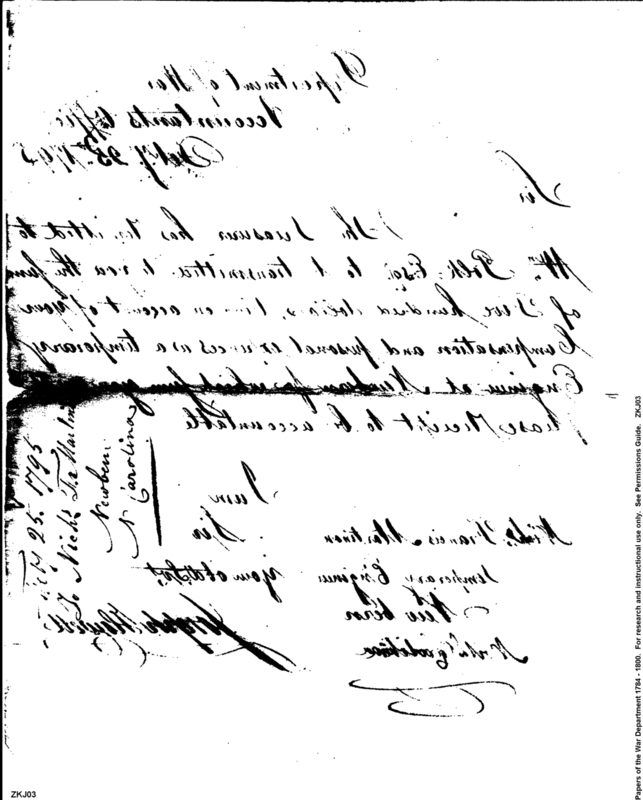 Department of War
Accountants Office
July 25th 1795
Sir
The Treasurer has remitted to
Wm Polk Esqr. to be transmitted to you the sum
of Two hundred dollars, being on account of your
Compensation and personal expences as a temporary
Engineer at Newbern for which sum you
please to be accountable
I am
Sir
your obdt St
Joseph Howell
Nichs. Francis Martinon
temporary Engineer
New bern
North Carolina
25. 1795
To Nichs Fra Martin
Newbern
N Carolina
ZKJ03
Papers of the War Department 1784 - 1800. For research and instructional use only. See Permissions Guide. ZKJ03